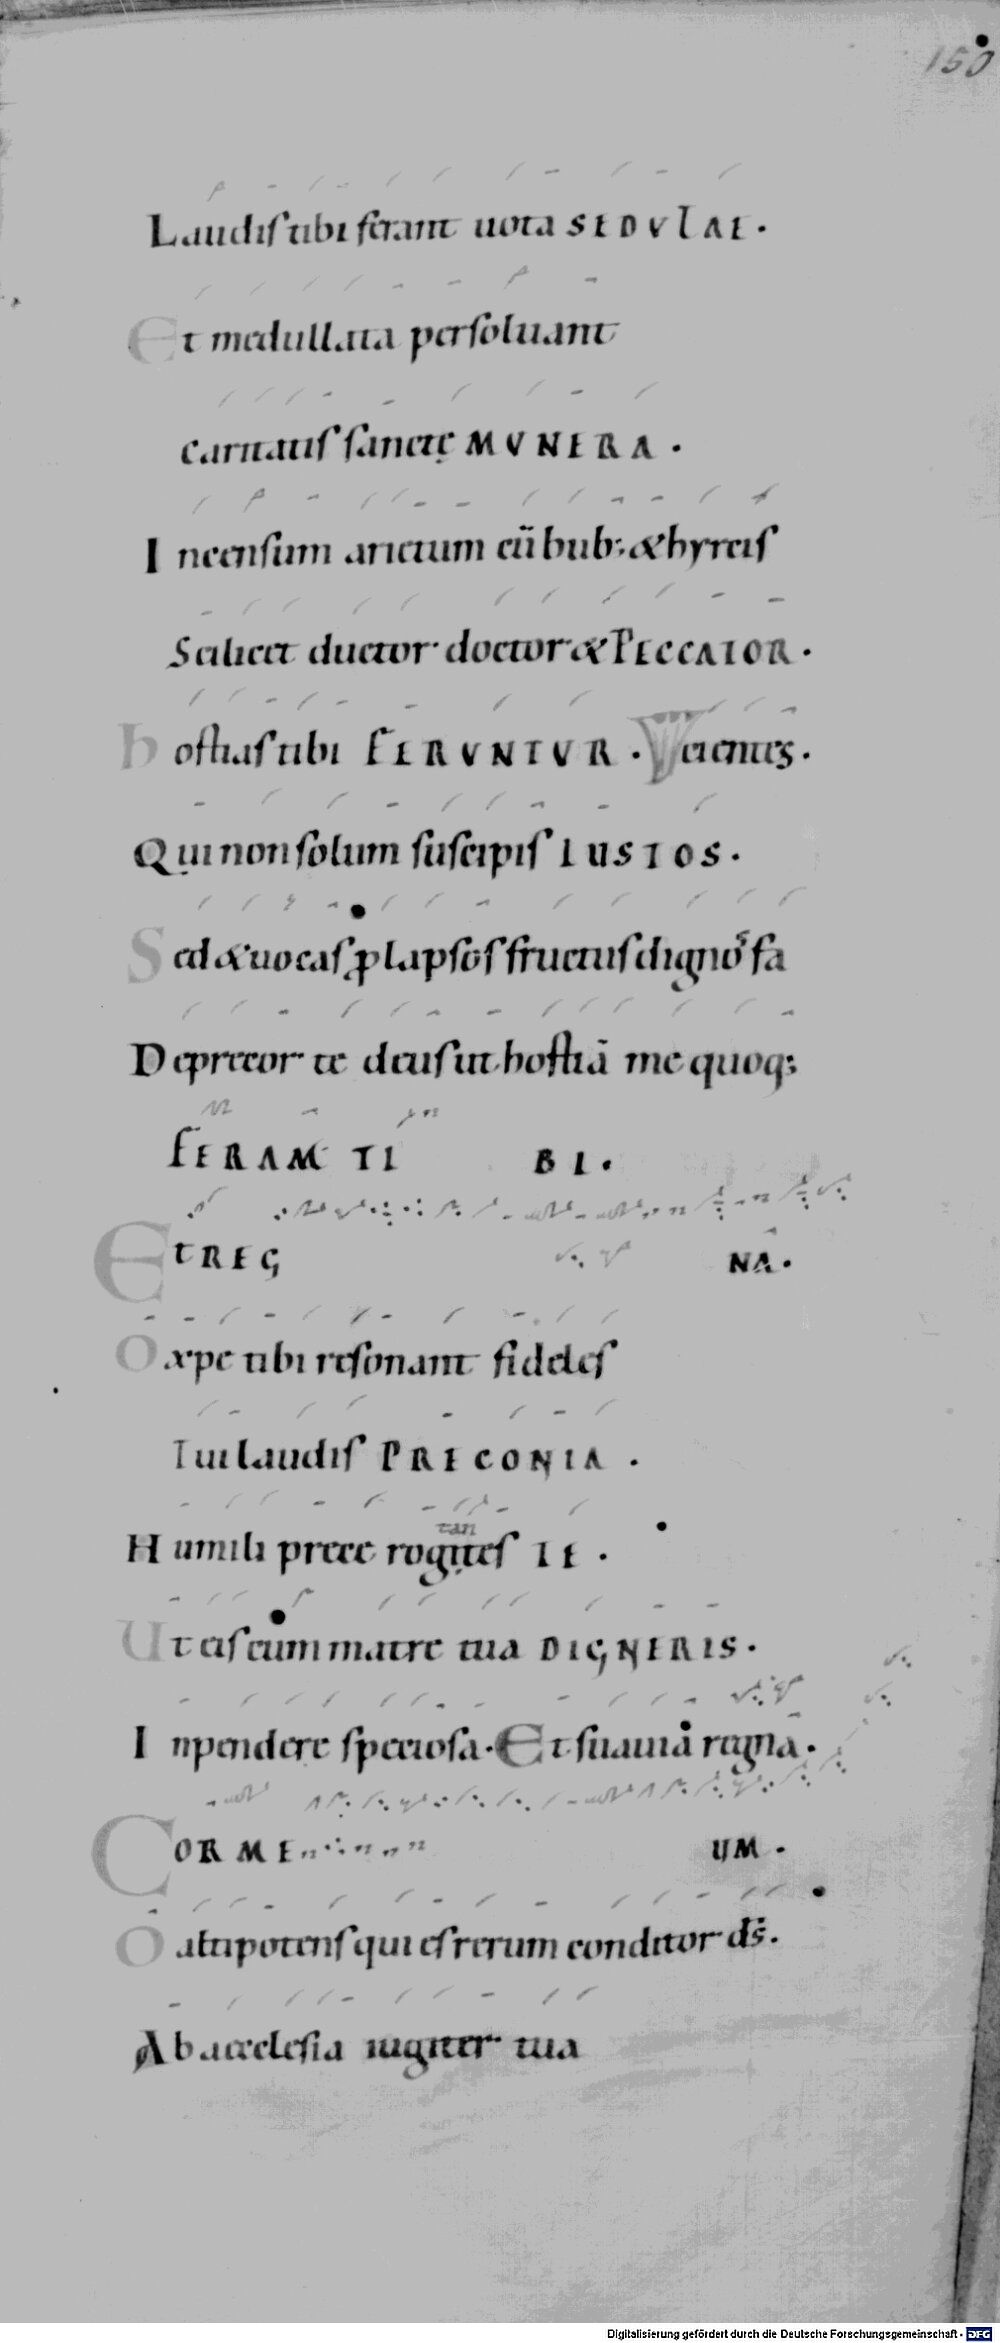 150
Laudis tibi ferant uota SEDVLAE.
Et medullata persoluant
caritatis sanctę MVNERA.
Incensum arietum cū bub; & hyrcis
Scilicet ductor doctor & PECCATOR.
hostias tibi FERVNTVR. Vcientes.
Qui non solum suscipis IUSTOS.
Sed & uocas plapsos fructus dignos fa
Deprecor te deus ut hostiā me quoq;
FERAM TI BI.
Et REG NA.
O xpe tibi resonant fideles
Tui laudis PRECONIA.
Humili prece rogites TE.
tan
Ut eis cum matre tua DIGNERIS.
Inpendere speciosa. Et suauia regna.
CORME UM.
O altipotens qui es rerum conditor ds.
Ab aecclesia iugiter tua
Digitalisierung gefördert durch die Deutsche Forschungsgemeinschaft - DFG